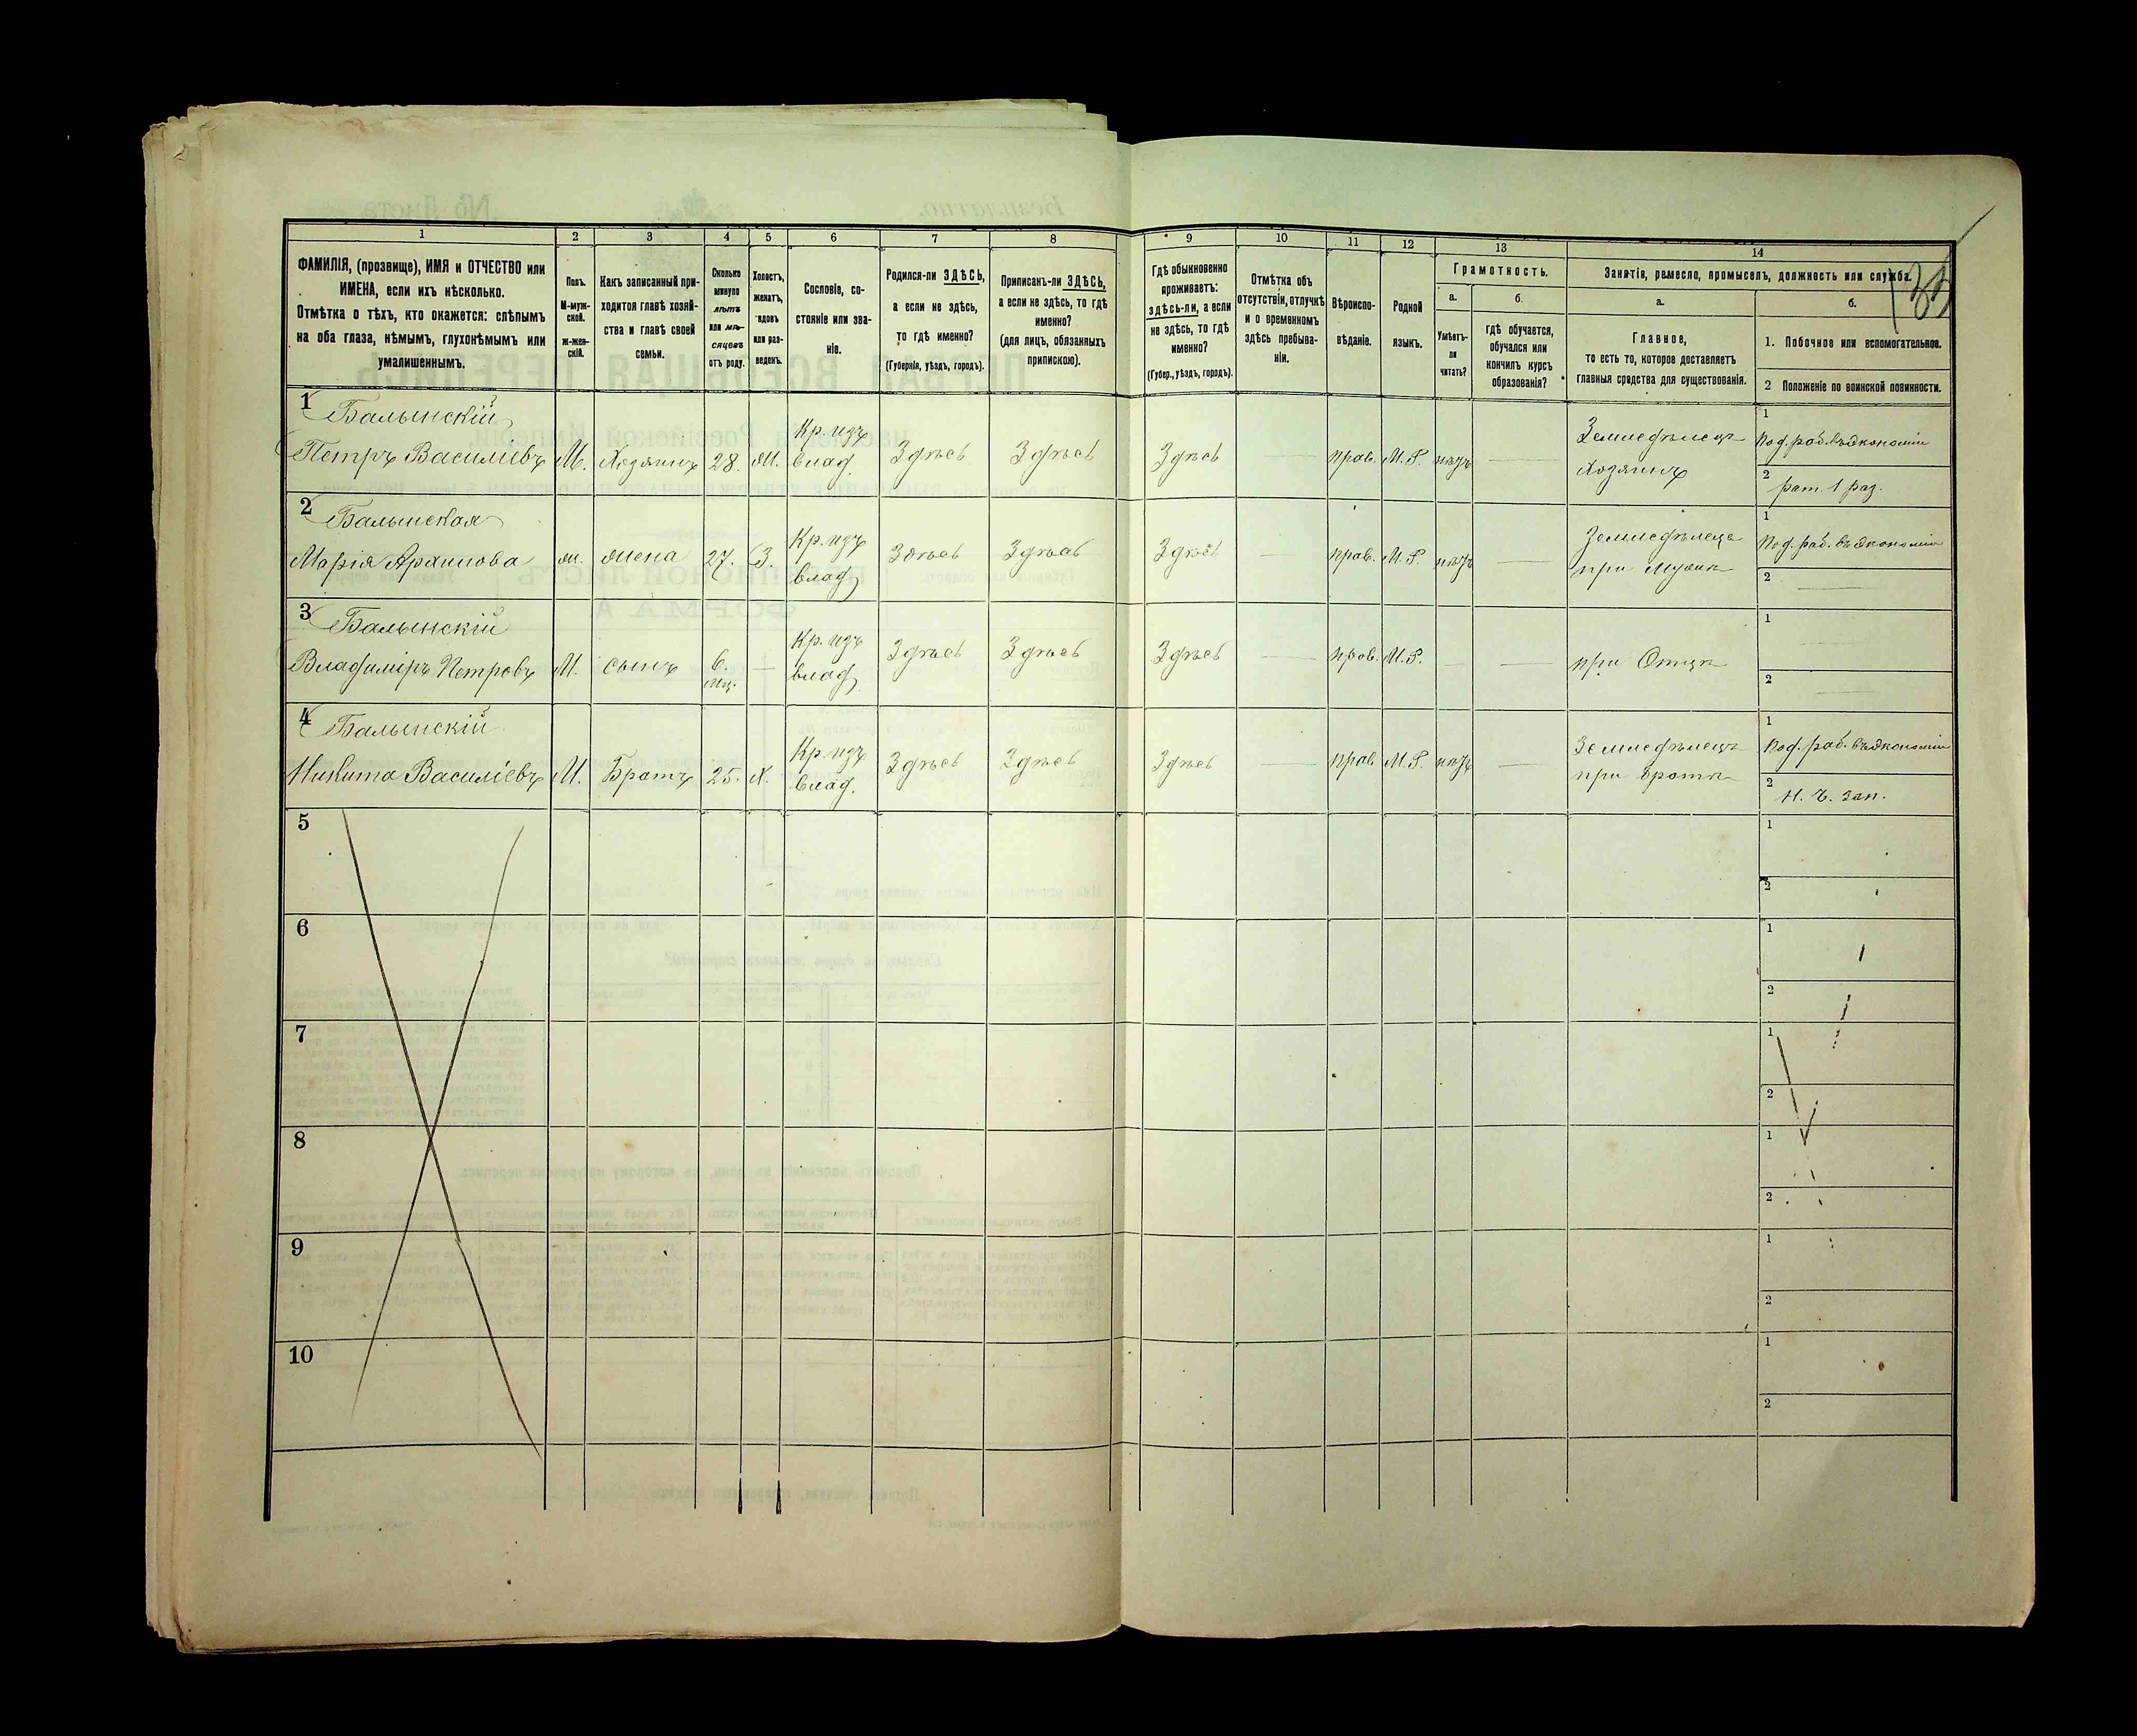 1 2 3 4 5 6 7 8 9 10 11 12 13 14
ФАМИЛІЯ, (прозвище), ИМЯ и ОТЧЕСТВО или
ИМЕНА, если ихъ нѣсколько.
Отмѣтка о тѣхъ, кто окажется: слѣпымъ
на оба глаза, нѣмымъ, глухонѣмымъ или
умалишеннымъ.
Полъ.
М-муж-
ской.
ж-жен-
скій.
Какъ записанный при-
ходится главѣ хозяй-
ства и главѣ своей
семьи.
Сколько
минуло
лѣтъ
или мѣ-
сяцевъ
отъ роду.
Холостъ,
женатъ,
вдовъ
или раз-
веденъ.
Сословіе, со-
стояніе или зва-
ніе.
Родился-ли ЗДѢСЬ,
а если не здѣсь,
то гдѣ именно?
(Губернія, уѣздъ, городъ).
Приписанъ-ли ЗДѢСЬ,
а если не здѣсь, то гдѣ
именно?
(для лицъ, обязанныхъ
припискою).
Гдѣ обыкновенно
проживаетъ:
здѣсь-ли, а если
не здѣсь, то гдѣ
именно?
(Губер., уѣздъ, городъ).
Отмѣтка объ
отсутствіи, отлучкѣ
и о временномъ
здѣсь пребыва-
ніи.
Вѣроиспо-
вѣданіе.
Родной
языкъ.
Грамотность.
а.
Умѣетъ-
ли
читать?
б.
гдѣ обучается,
обучался или
кончилъ курсъ
образованія?
Занятія, ремесло, промыселъ, должность или служба.
а.
Главное,
то есть то, которое доставляетъ
главныя средства для существованія.
б.
1. Побочное или вспомогательное.
2 Положеніе по воинской повинности.
1 Балынскій
Петръ Василіевъ М. Хозяинъ 28. Ж. Кр. изъ влад. Здѣсь Здѣсь Здѣсь — прав. М. Р. нѣтъ — Земледѣлецъ Хозяинъ
1 Под. раб. въ экономіи
2 рат. 1 раз.
2 Балынская
Марія Архипова ж. жена 27. З. Кр. изъ влад. Здѣсь Здѣсь Здѣсь — прав. М. Р. нѣтъ — Земледѣлецъ при Мужѣ
1 Под. раб. въ экономіи
2 —
3 Балынскій
Владиміръ Петровъ М. сынъ 6. мц. — Кр. изъ влад. Здѣсь Здѣсь Здѣсь — прав. М. Р. — — при Отцѣ
1 —
2 —
4 Балынскій
Никита Василіевъ М. Братъ 25. Х. Кр. изъ влад. Здѣсь Здѣсь Здѣсь — прав. М. Р. нѣтъ — Земледѣлецъ при братѣ
1 Под. раб. въ экономіи
2 Н. Ч. Зап.
5
1
2
6
1
2
7
1
2
8
1
2
9
1
2
10
1
2